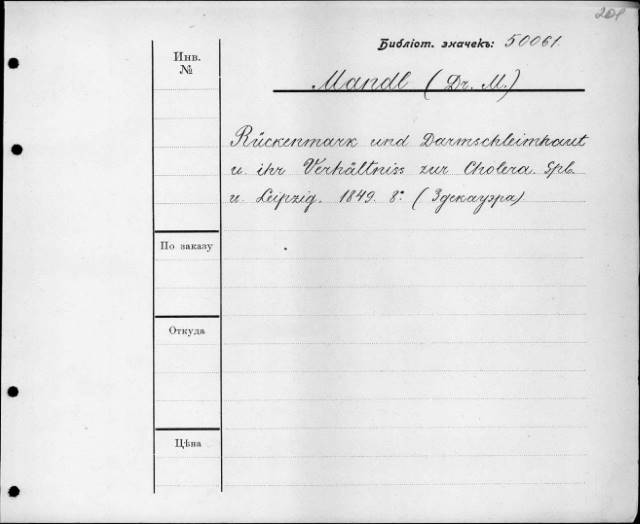 201
Библіот. значекъ: 50061.
Инв.
№
Mandl (Dr. M.)
Rückenmark und Darmschleimhaut
u. ihr Verhältniss zur Cholera. Spb.
u. Leipzig. 1849. 8º. (Здекауэра)
По заказу
Откуда
Цѣна